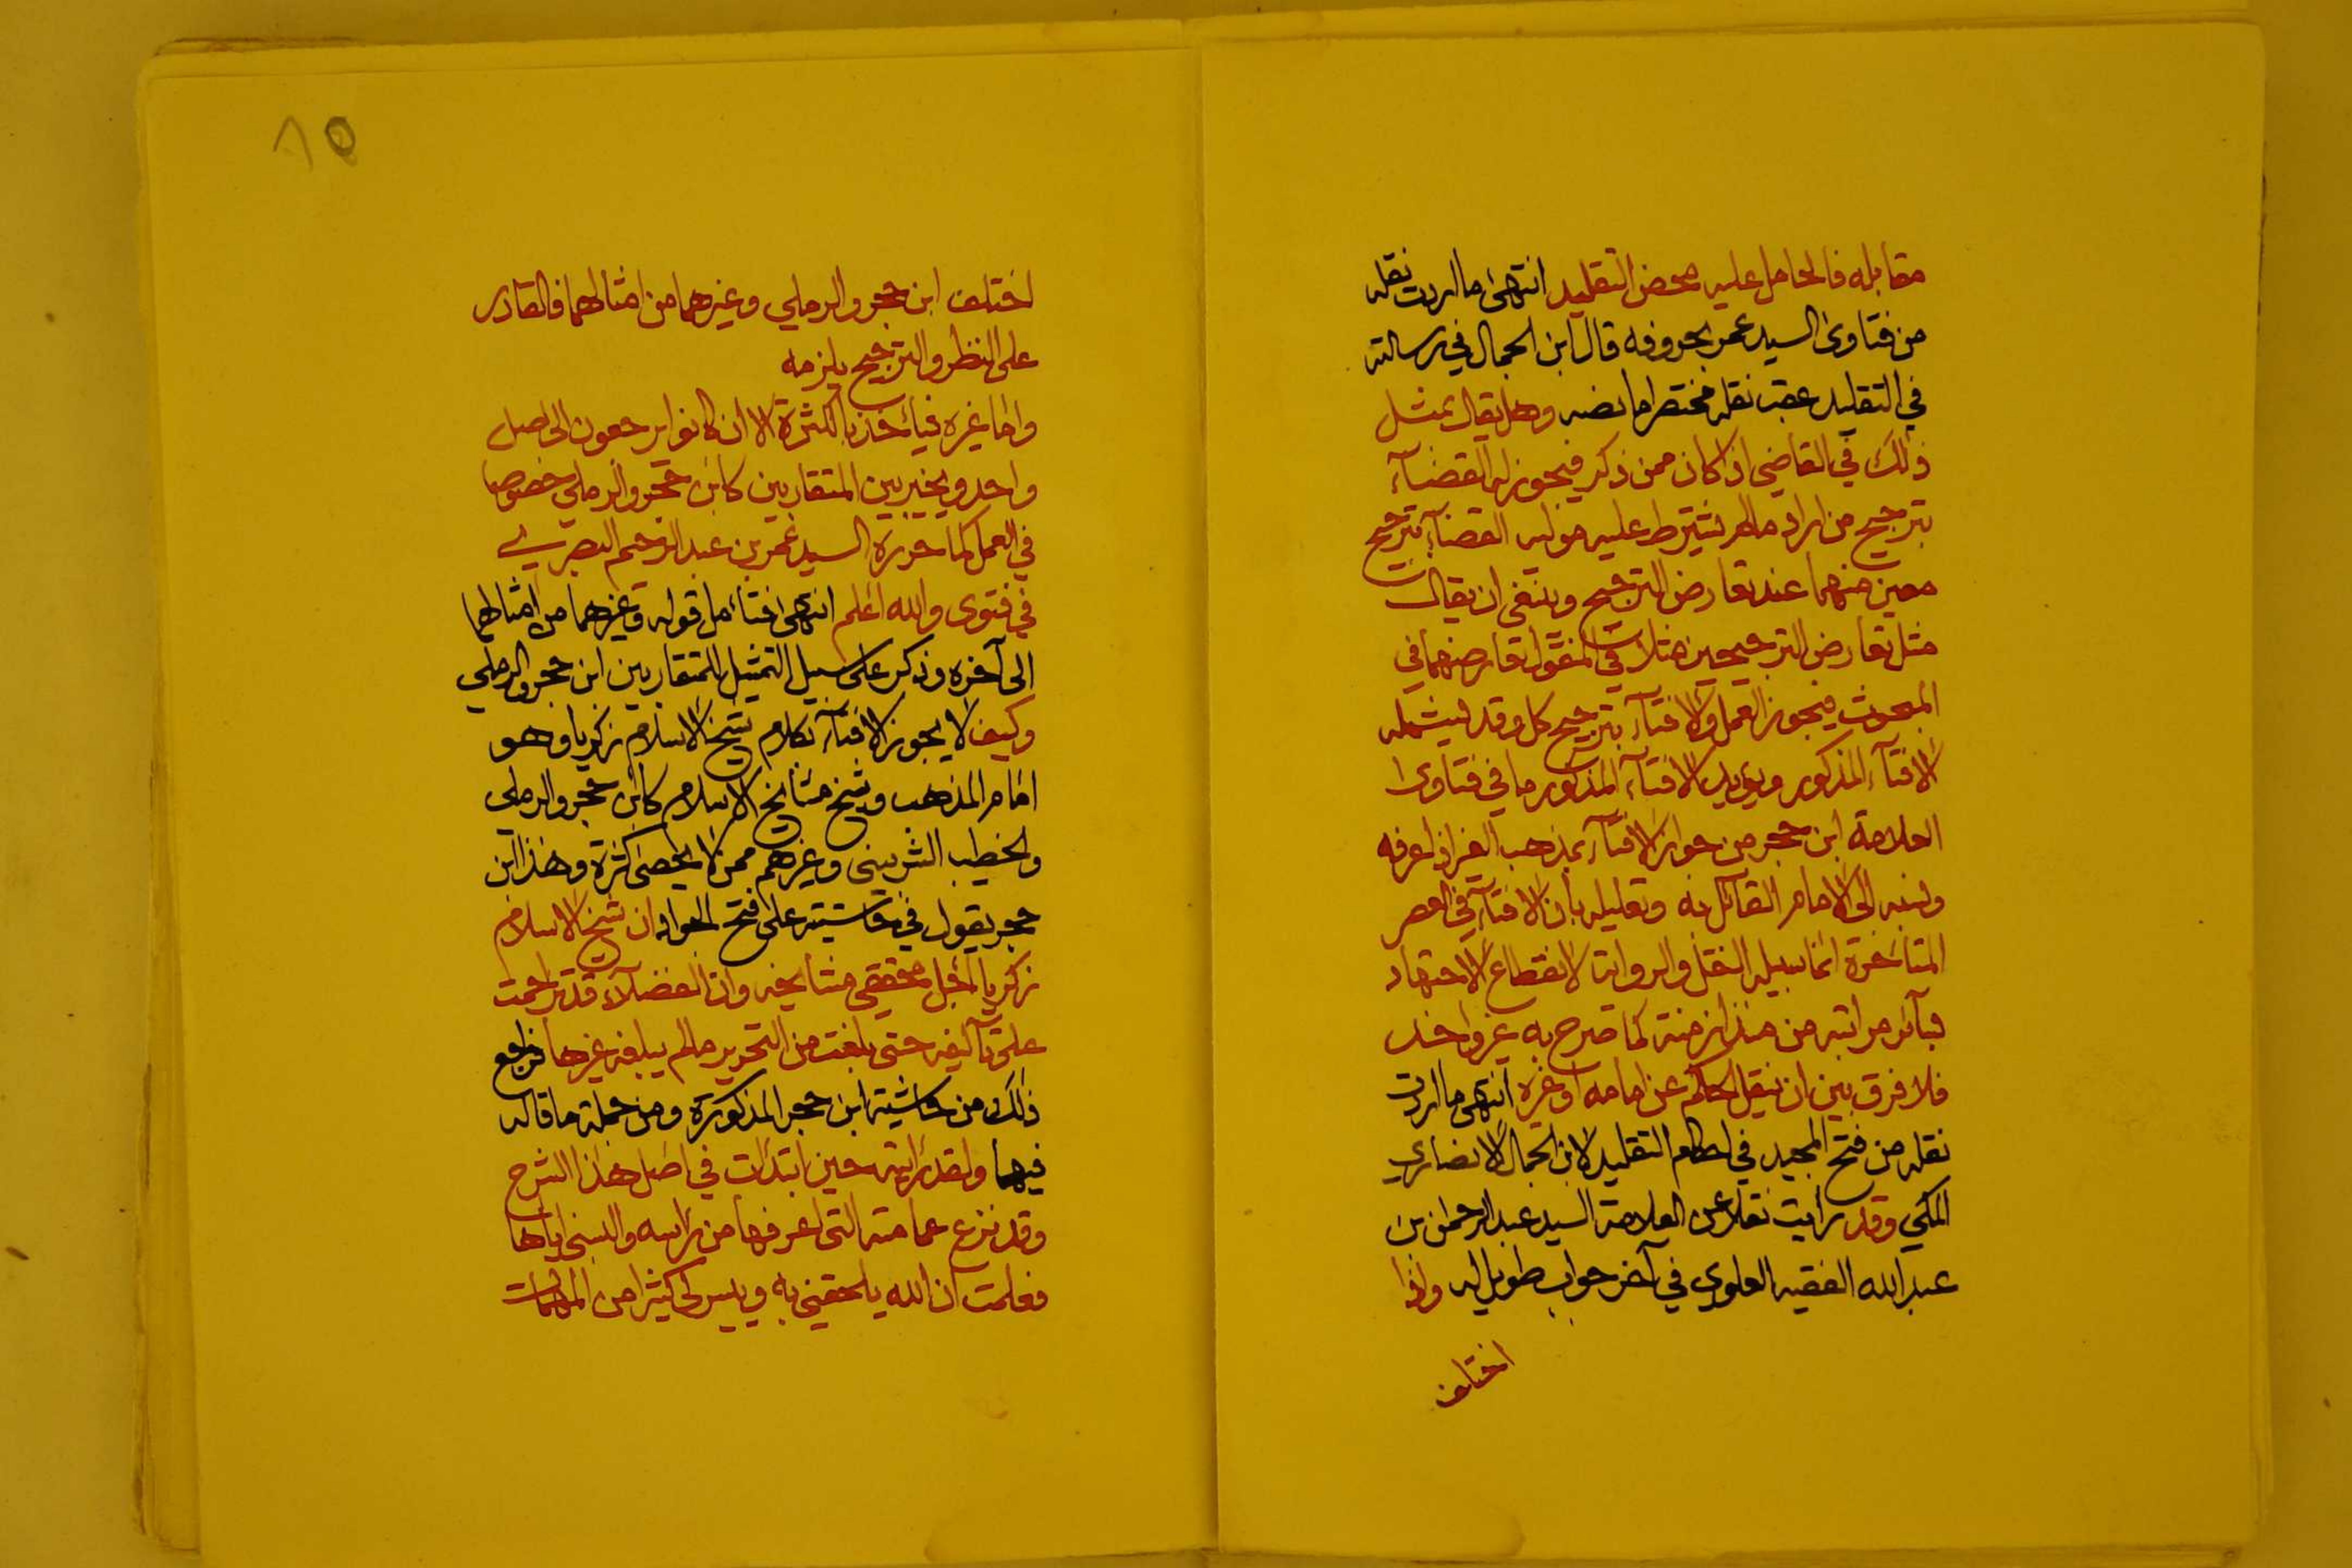 مقابله فالحامل عليه محض التقليد انتهى ما اردت نقله
من فتاوى السيد عمر بحروفه قال ابن الجمال في رسالته
في التقليد عقب نقله مختصرا ما نصه وهل يقال بمثل
ذلك في القاضي اذا كان ممن ذكر فيجوز له القضآء
بترجيح من اراد ما لم يشترط عليه موليه القضآء بترجيح
معين منهما عند تعارض الترجيح وينبغي ان يقال
مثل تعارض الترجيحين مثلا في المنقول تعارضهما في
المبحوث فيجوز العمل والافتآء بترجيح كل وقد يشمله
الافتآء المذكور ويؤيد الافتآء المذكور ما في فتاوى
العلامة ابن حجر من جواز الافتآء بمذهب الغير اذا عرفه
ونسبه الى الامام القائل به وتعليله بان الافتآء في العصر
المتاخرة انما سبيله النقل والرواية لانقطاع الاجتهاد
بسآئر مراتبه من منذ ازمنة كما صرح به غير واحد
فلا فرق بين ان ينقل الحكم عن امامه او غيره انتهى ما اردت
نقله من فتح المجيد في احكام التقليد لابن الجمال الانصاري
المكي وقد رايت نقلا عن العلامة السيد عبد الرحمن بن
عبد الله الفقيه العلوي في آخر جواب طويل له واذا
اختلف
٨٥
اختلف ابن حجر والرملي وغيرهما من امثالهما فالقادر
على النظر والترجيح يلزمه
واما غيره فيأخذ بالكثرة الا ان كانوا يرجعون الى اصل
واحد ويتخير بين المتقاربين كابن حجر والرملي خصوصا
في العمل كما حرره السيد عمر بن عبد الرحيم البصري
في فتوى والله اعلم انتهى فتأمل قوله وغيرهما من امثالهما
الى آخره وذكر على سبيل التمثيل للمتقاربين ابن حجر والرملي
وكيف لا يجوز الافتآء بكلام شيخ الاسلام زكريا وهو
امام المذهب وشيخ مشايخ الاسلام كابن حجر والرملي
والخطيب الشربيني وغيرهم ممن لا يحصى كثرة وهذا ابن
حجر يقول في حاشيته على فتح الجواد ان شيخ الاسلام
زكريا اجل محققي مشايخه وان الفضلآء قد تزاحمت
على تآليفه حتى بلغت من التحرير ما لم يبلغه غيرها فراجع
ذلك من حاشية ابن حجر المذكورة ومن جملة ما قاله
فيهما ولقد رايته حين ابتدات في اصل هذا الشرح
وقد نزع عمامته التي اعرفها من راسه والبسني اياها
فعلمت ان الله يلحقني به وييسر لي كثيرا من المهمات